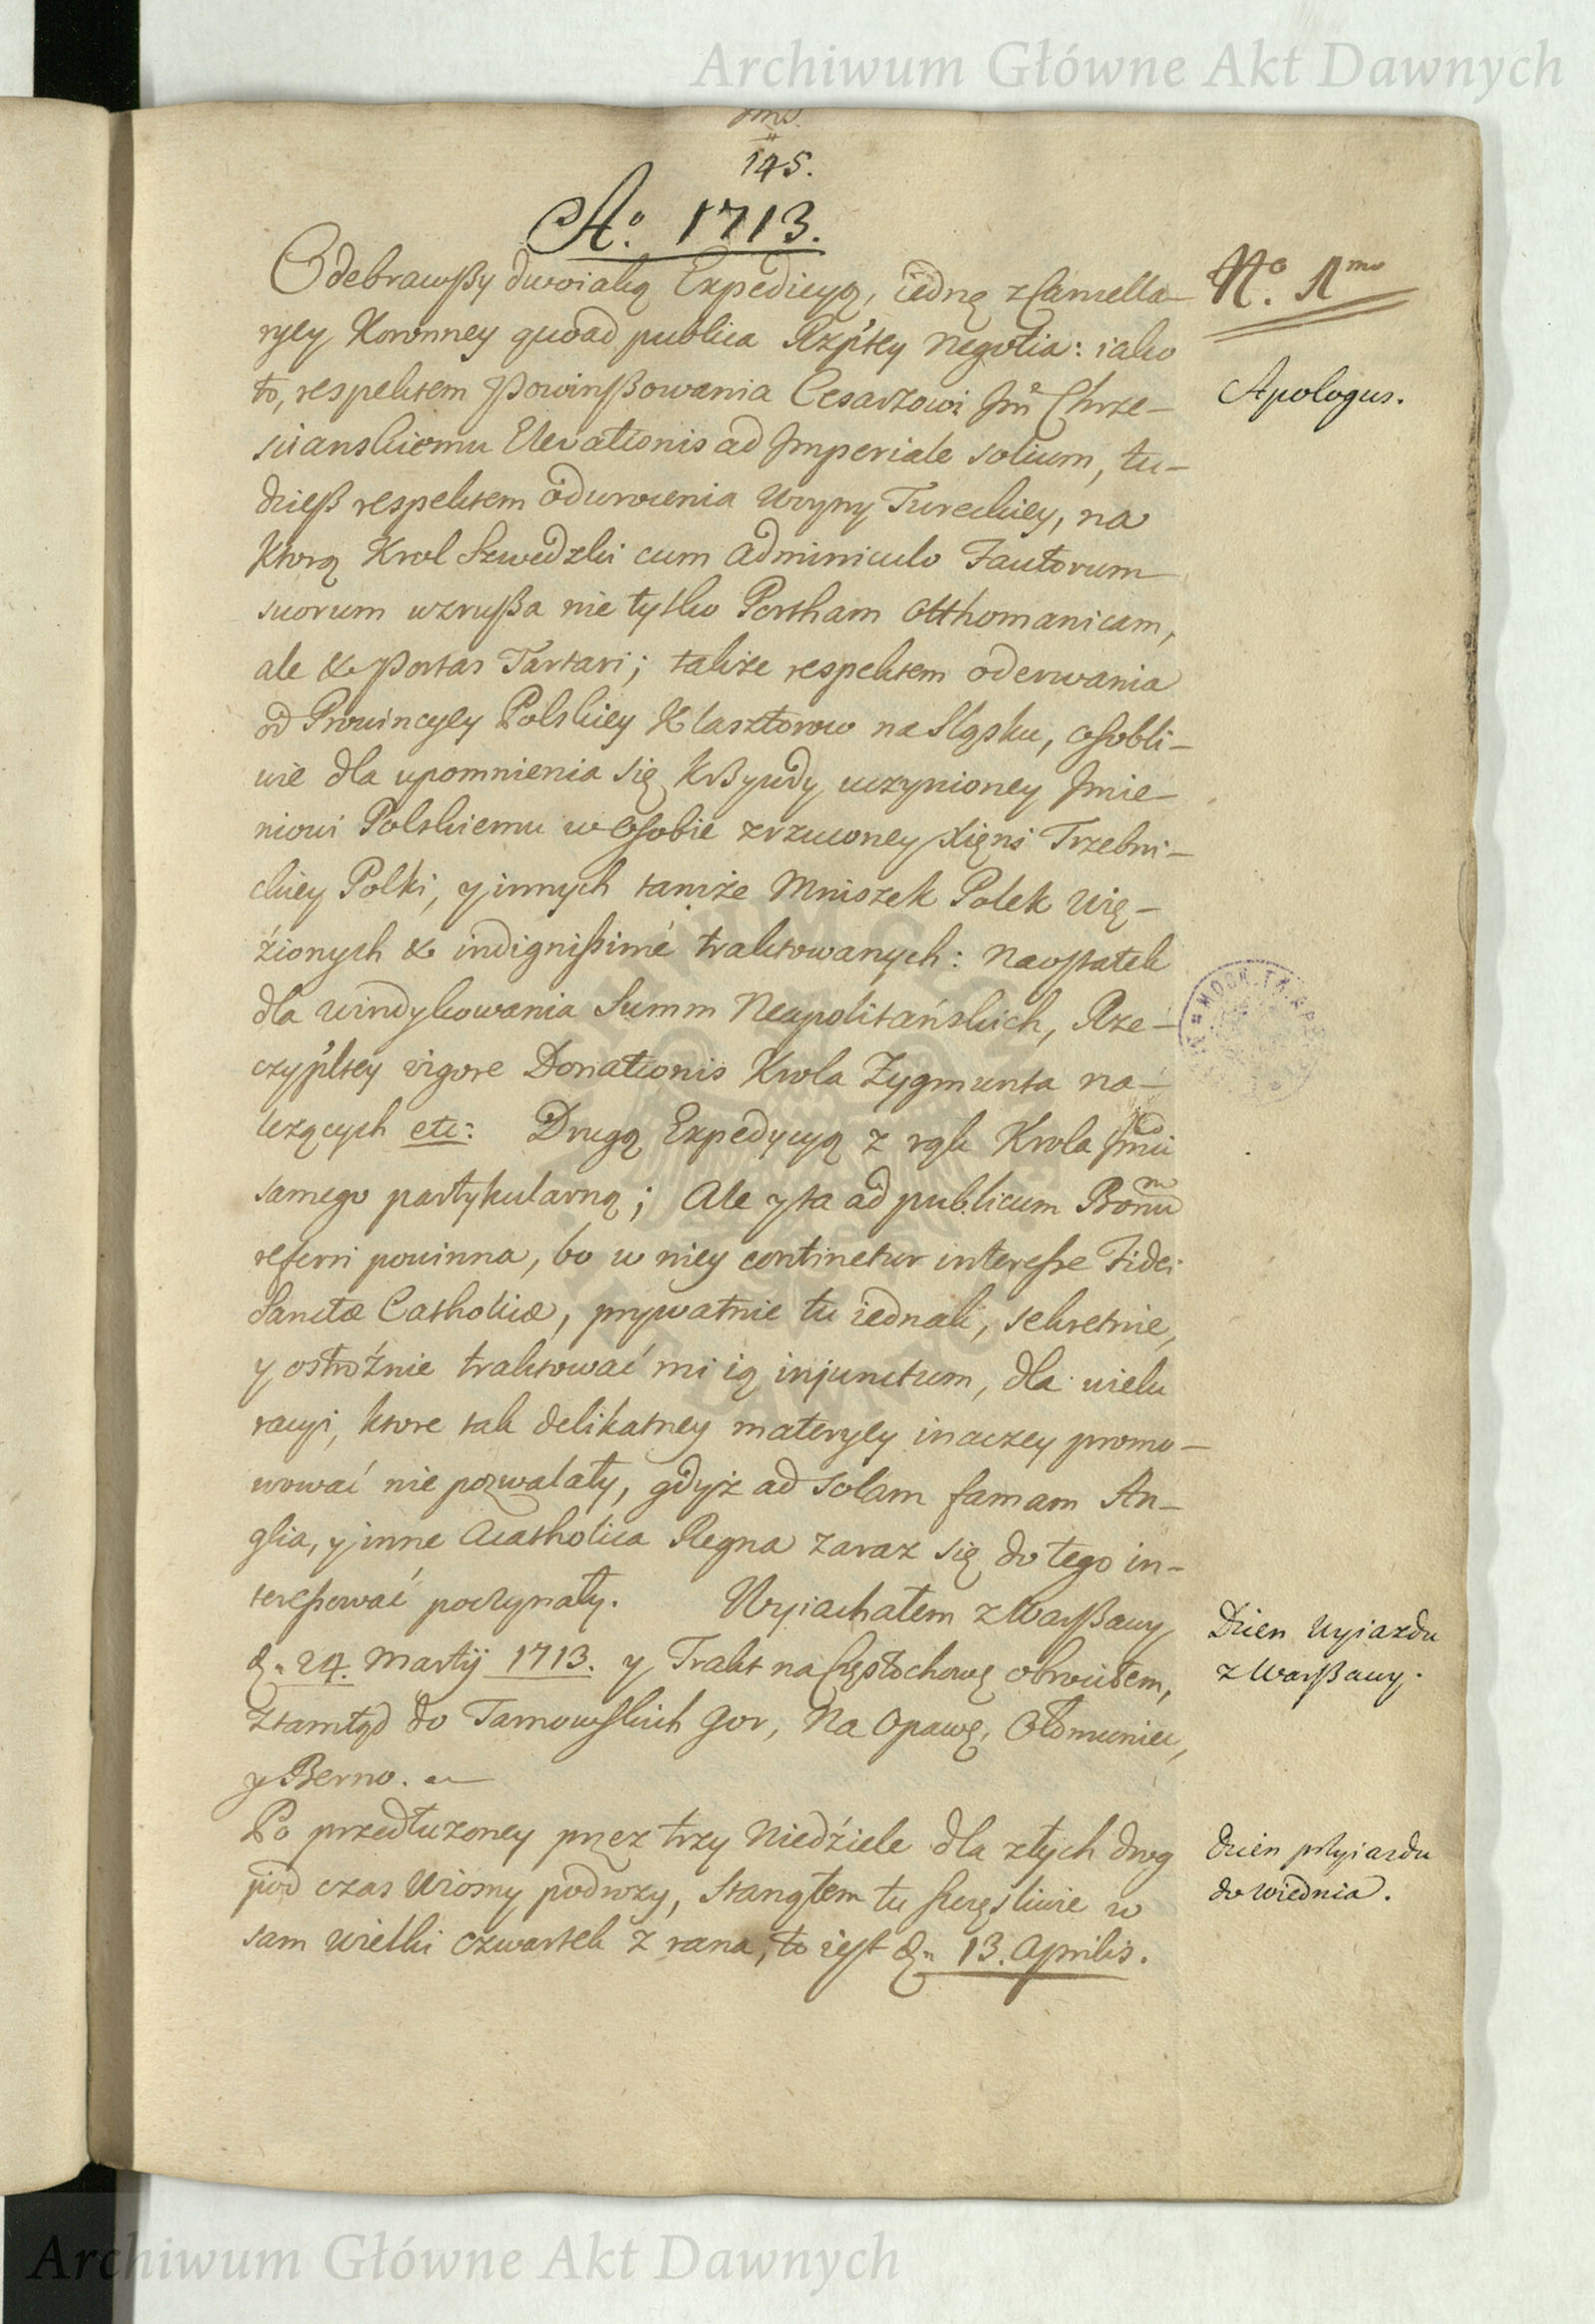 Archiwum Główne Akt Dawnych
145.
Aº 1713.
Odebrawßy dwoiaką Expedicyą, iednę z Cancella-
ryey Koronney quoad publica Rzp̃tey negotia: iako
to, respektem Powinßowania Cesarzowi Jmci Chrze-
scianskiemu Elevationis ad Imperiale solium, tu-
dzieß respektem odwrocenia Woyny Tureckiey, na
ktorą Krol Szwedzki cum adminiculo Fautorum
suorum wzrußa nie tylko Portham Otthomanicam,
ale & Portas Tartari; takze respektem oderwania
od Prowincyey Polskiey Klasztorow na Sląsku, osobli-
wie dla upomnienia się krßywdy uczynioney Jmie-
niowi Polskiemu w osobie zrzuconey Xięni Trzebni-
ckiey Polki, y innych tamże Mniszek Polek Wię-
źionych & indignißimé traktowanych: naostatek
dla windykowania Summ Neapolitańskich, Rze-
czyp̃ltey vigore Donationis Krola Zygmunta na-
lezących etc: Drugą Expedycyą z ręk Krola Jmci
samego partykularną; Ale y ta ad publicum Bonum
referri powinna, bo w niey continetur interesse Fidei
Sanctæ Catholicæ, prywatnie tu iednak, sekretnie,
y ostrożnie traktować mi ią injunctum, dla wielu
racyi, ktore tak delikatney materyey inaczey promo-
wować nie pozwalały, gdyż ad solam famam An-
glia, y inne Acatholica Regna zaraz się do tego in-
teressować poczynały. Wyiachałem z Warßawy
d. 24. Martij 1713. y Trakt na Częstochowę obrociłem,
ztamtąd do Tarnowskich Gor, na Opawę, Ołomuniec,
y Berno.
Po przedłuzoney przez trzy Niedźiele dla złych drog
pod czas Wiosny podrozy, stanąłem tu szczęsliwie w
sam wielki czwartek z rana, to iest d. 13. Aprilis.
Nº. 1mo
Apologus.
Dzien Wyiazdu
z Warßawy.
Dzien przyiazdu
do Wiednia.
Archiwum Główne Akt Dawnych